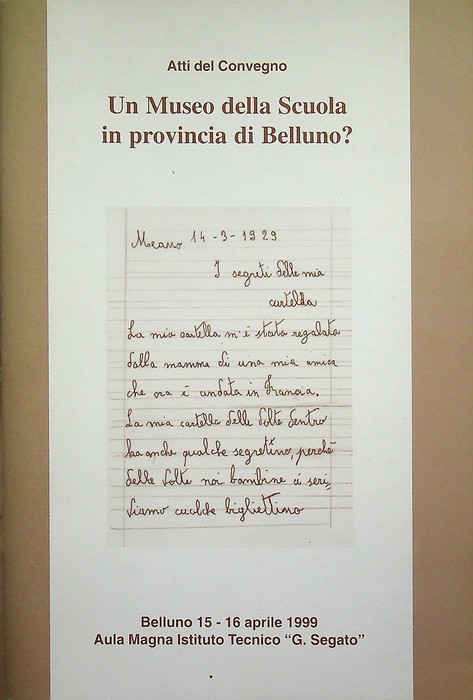 Atti del Convegno
Un Museo della Scuola
in provincia di Belluno?
Meano 14-3-1929
I segreti della mia
cartella
La mia cartella m'è stata regalata
dalla mamma di una mia amica
che ora è andata in Francia.
La mia cartella delle volte dentro
ha anche qualche segretino, perchè
delle volte noi bambine ci scri=
viamo cualche bigliettino
Belluno 15 - 16 aprile 1999
Aula Magna Istituto Tecnico “G. Segato”